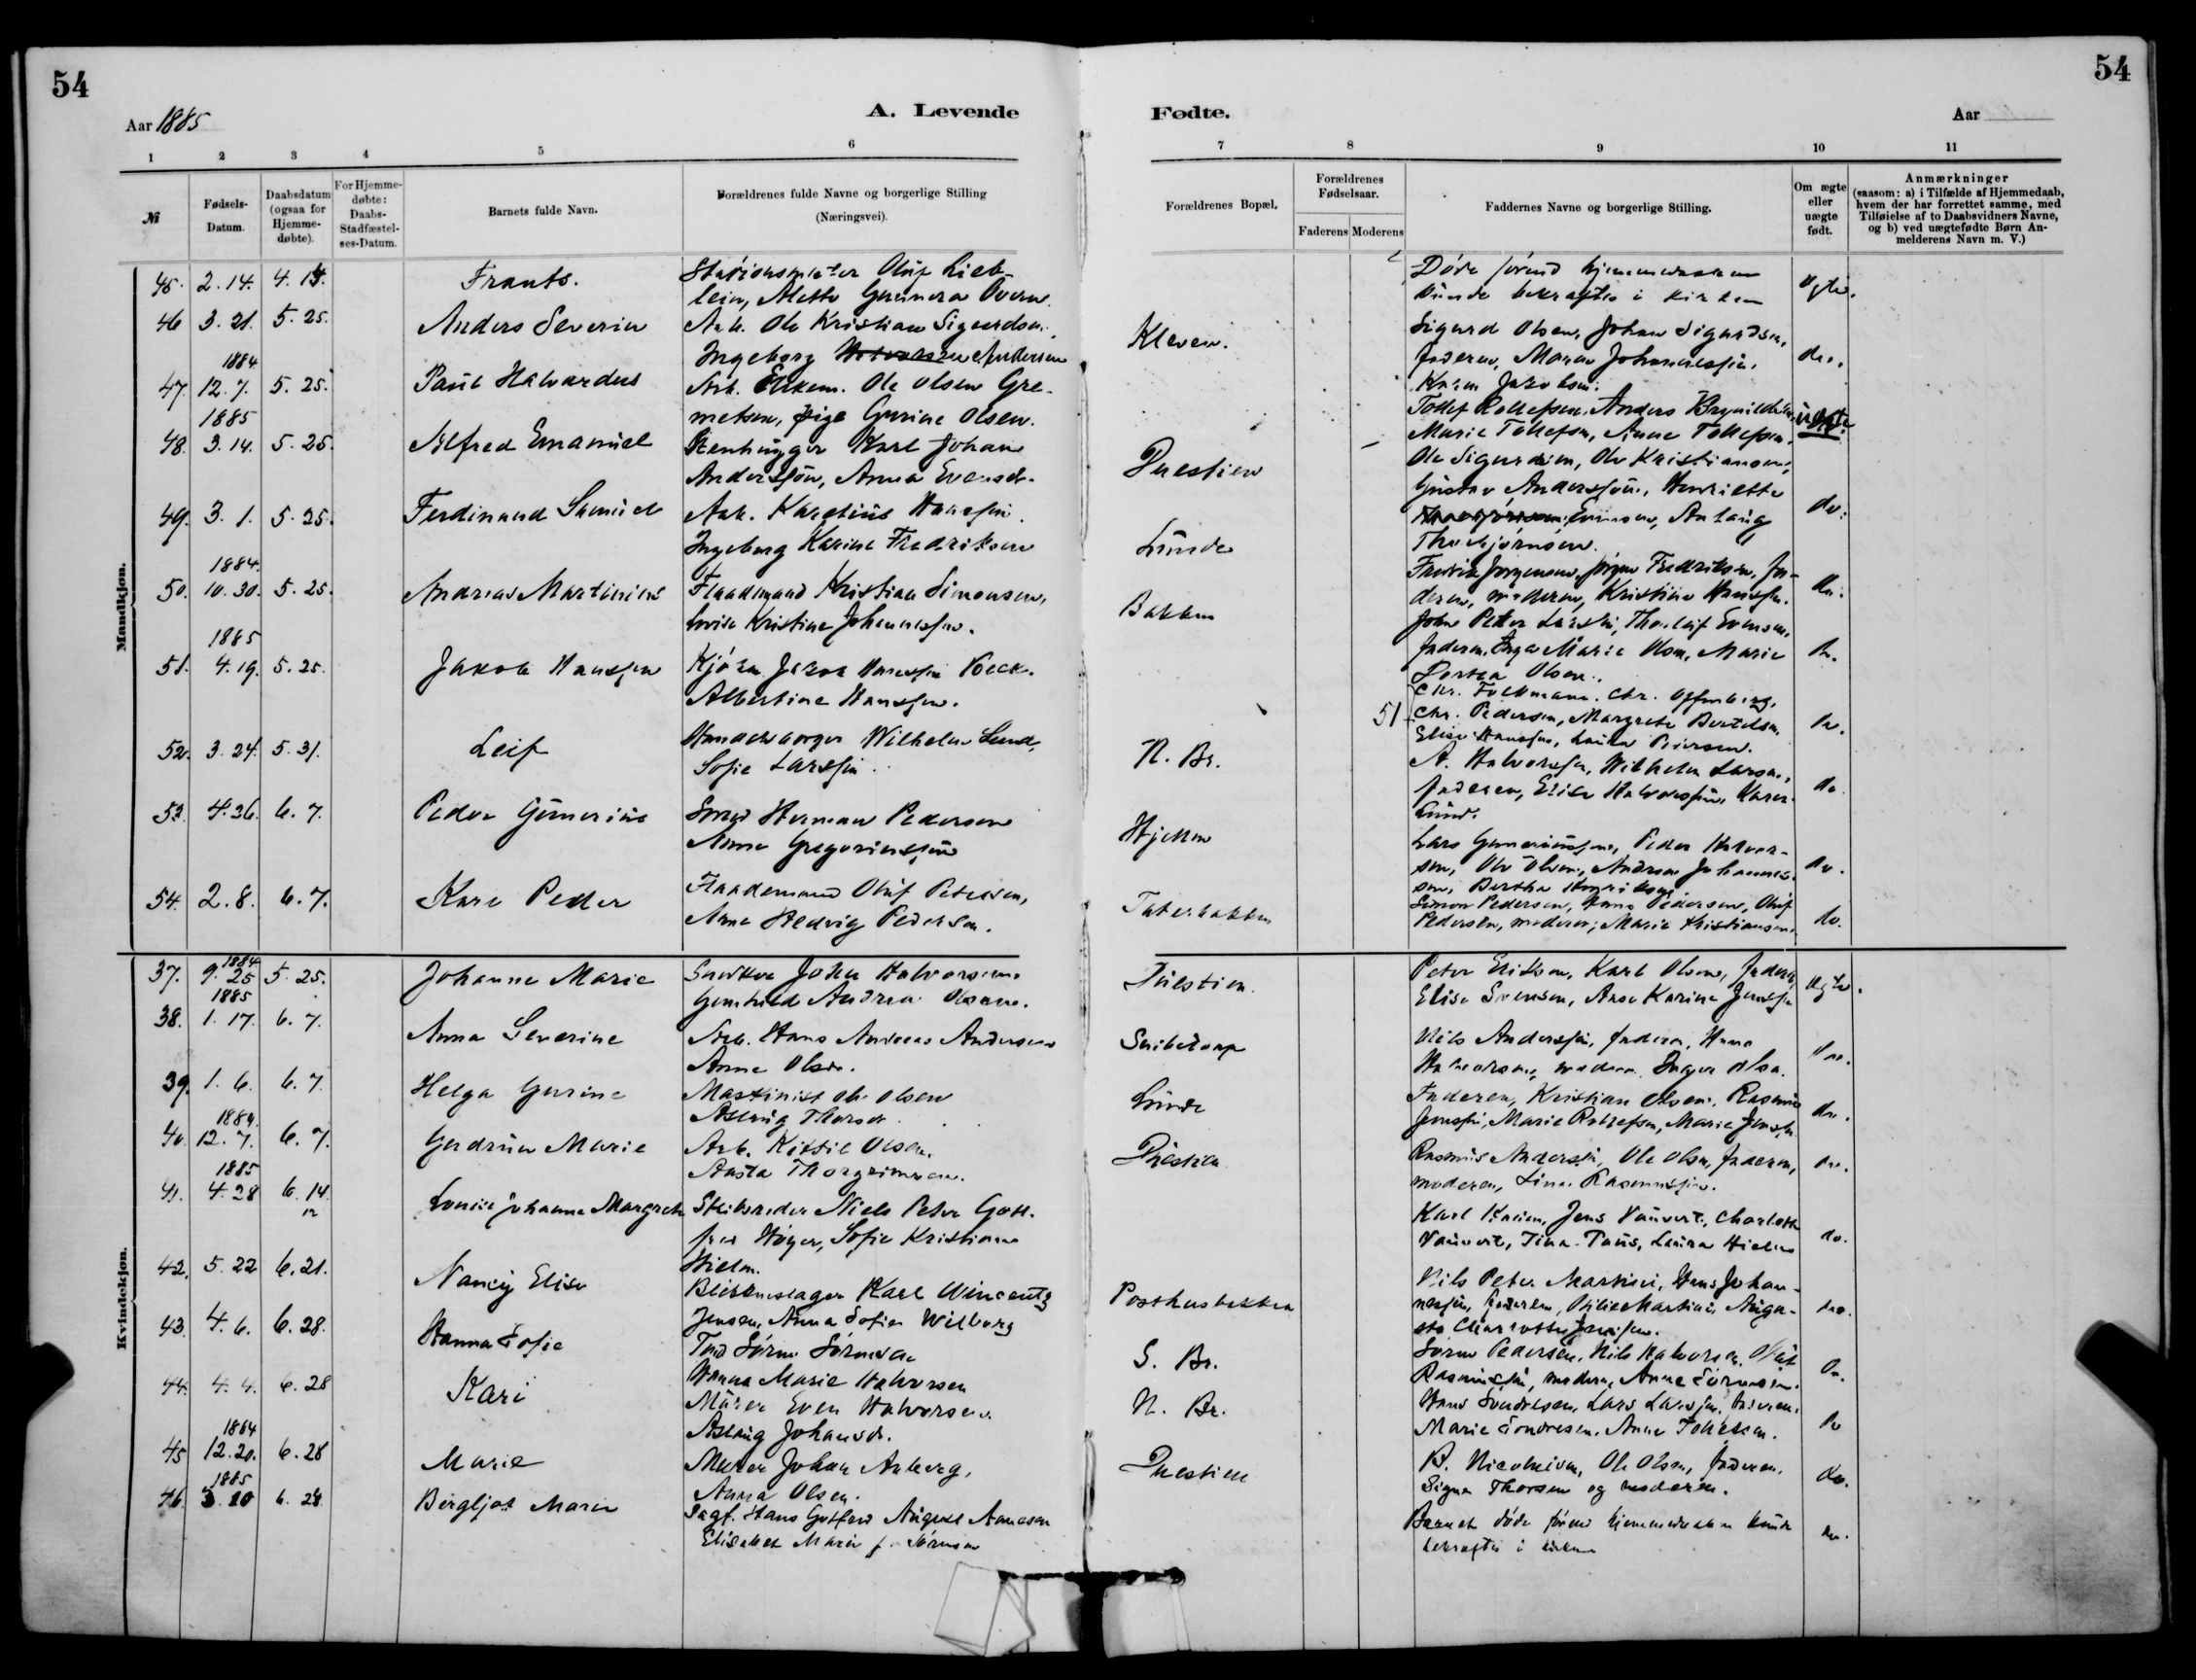 54
54
Aar 1885
A. Levende
Fødte.
Aar
1 2 3 4 5 6 7 8 9 10 11
№
Fødsels-Datum.
Daabsdatum (ogsaa for Hjemme-døbte).
For Hjemme-døbte: Daabs-Stadfæstel-ses-Datum.
Barnets fulde Navn.
Forældrenes fulde Navne og borgerlige Stilling
(Næringsvei).
Forældrenes Bopæl.
Forældrenes Fødselsaar.
Faderens Moderens
Faddernes Navne og borgerlige Stilling.
Om ægte eller uægte født.
Anmærkninger
(saasom: a) i Tilfælde af Hjemmedaab,
hvem der har forrettet samme, med
Tilføielse af to Daabsvidners Navne,
og b) ved uægtefødte Børn An-
melderens Navn m. V.)
Mandkjøn.
45. 2. 14. 4. 14. Frants. Oluf Lieb-
lein, Gunnera Døde førend hjemmedaaben
kunde bekræftes i kirken
46 3. 21. 5. 25. Anders Severin Arb. Ole Kristian Sigurdsen
Ingeborg Andersen Kleven. Sigurd Olsen, Johan Sigurdsen,
faderen, Maren Johannessen, do.
Karen Jakobsen.
1884
47. 12. 7. 5. 25. Paul Halvardus Arb. Ole Olsen Gre-
metsen, pige Gurine Olsen. Tollef Rollefsen, Anders uægte
Marie Tollefsen, Anne Tollefsen.
1885
48. 3. 14. 5. 25. Alfred Emanuel Stenhugger Karl Johan
Anderssøn, Anna Prestien Ole Sigurdsen, Ole Kristiansen,
Gustav Anderssøn, Henriette do.
Evensen, Aslaug
Thorbjørnsen.
49. 3. 1. 5. 25. Ferdinand Samuel Arb. Karelius Hanssen.
Ingeborg Karine Fredriksen Lunde Jørgensen, Jørgen Fredriksen, fa-
deren, moderen, Kristine Hanssen. do.
1884.
50. 10. 30. 5. 25. Andreas Martinius Flaadmand Kristian Simonsen,
Lovise Kristine Johannessen. Bakken John Peter Larsen, Thorleif Evensen,
faderen, Inger Marie Olsen, Marie do.
Dorthea Olsen.
1885
51. 4. 19. 5. 25. Jakob Hanssen Kjøbm. Jacob Hanssen Beck.
Albertine Hanssen. 51 Chr. Folkmann, Chr.
Chr. Pedersen, Margrete Bertelsen, do.
Elise Hanssen, Laura Petersen.
52. 3. 24. 5. 31. Leif Wilhelm Lund,
Sofie Larssen. N. Br. A. Halvorssen, Wilhelm Larsen,
faderen, Elise Halvorssen, Karen do.
Lund.
53. 4. 26. 6. 7. Peder Gunerius Smed Herman Pedersen
Anne Gregoriussen Hjellen Lars Gunneriussen, Peder Halvor-
sen, Ole Olsen, Andrea Johannes- do.
sen, Bertha
54. 2. 8. 6. 7. Karl Peder Flaademand Oluf Petersen,
Anne Hedvig Pedersen. Taterbakken Simon Pedersen, Hans Pedersen, Oluf
Pedersen, moderen, Marie Kristiansen. do.
Kvindekjøn.
1884
37. 9. 25 5. 25. Johanne Marie Snedker John Halvorsen
Gunhild Andrea Olsen. Prestien Peter Eriksen, Karl Olsen, faderen,
Elise Svensen, Anne Karine Jenssen ægte.
1885
38. 1. 17. 6. 7. Anna Severine Arb. Hans Andreas Andersen
Anne Olsen. Nils Anderssen, faderen, Hanna
Halvorsen, moderen, Inger Olsen. do.
39. 1. 6. 6. 7. Helga Gurine Maskinist Ole Olsen
Aslaug Thorsd. Lunde Faderen, Kristian Olsen, Rasmus
Jenssen, Marie Rollefsen, Marie Jenssen do.
1884.
40. 12. 7. 6. 7. Gudrun Marie Arb. Kittil Olsen.
Asta Thorgrimsen. Prestien Rasmus Anderssen, Ole Olsen, faderen,
moderen, Lina Rasmussen. do.
1885
41. 4. 28 6. 14. Louise Johanne Margrete Skibsreder Niels Peter Gott-
fred Høyer, Sofie Kristiane
Hielm. Karl Jens Vauvert, Charlotte
Vauvert, Tina Paus, Laura Hielm do.
42. 5. 22 6. 21. Nancy Elise Blikkenslager Karl Wincentz
Jensen, Anna Sofie Wilborg Posthusbakken Nils Peter Martini, Hans Johan-
nessen, faderen, Martini, Augu-
sta Charlotte Jenssen. do.
43. 4. 6. 6. 28. Hanna Sofie Søren Sørensen
Hanna Marie Halvorsen S. Br. Søren Pedersen, Nils Halvorsen, Oluf
Rasmussen, moderen, Anne Sørensen. do.
44. 4. 4. 6. 28 Kari Murer Even Halvorsen
Aslaug Johansd. N. Br. Hans Sondresen, Lars Larssen, faderen,
Marie Sondresen, Anne Tollefsen. do
1884
45 12. 20. 6. 28 Marie Murer Johan Aaberg,
Anna Olsen. Prestien B. Nicolaisen, Ole Olsen, faderen,
Signe Thorsen og moderen. do.
1885
46. 3. 20 6. 28. Bergljot Marie Sagf. Hans Gotfred August Aanesen
Elisabet Marie f. Sørensen Barnet døde førend hjemmedaaben kunde
bekræftes i kirken do.